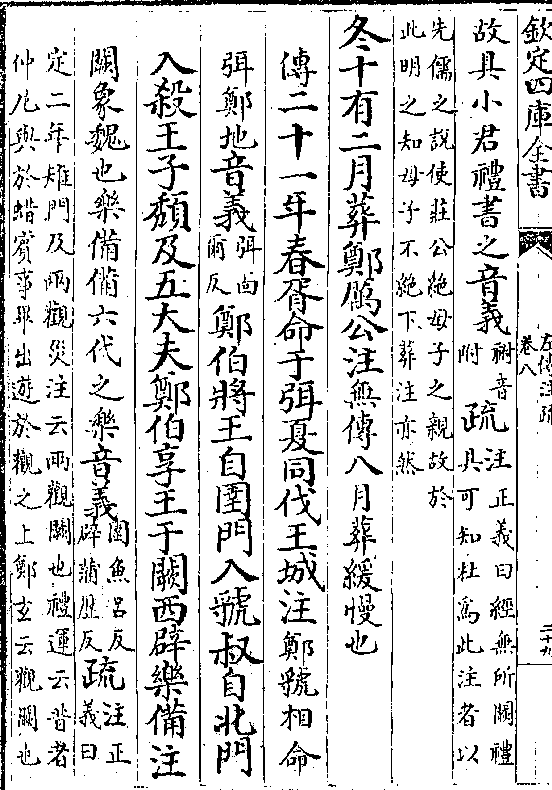 欽定四庫全書
左傳注疏
卷八
二十九
故具小君禮書之音義祔音附疏注正義曰經無所闕禮具可知杜為此注者以
先儒之說使莊公絕母子之親故於
此明之知母子不絕下葬注亦然
冬十有二月葬鄭厲公注無傳八月葬緩慢也
傳二十一年春胥命于弭夏同伐王城注鄭虢相命
弭鄭地音義弭面爾反鄭伯將王自圉門入虢叔自北門
入殺王子頹及五大夫鄭伯享王于闕西辟樂備注
闕象魏也樂備備六代之樂音義圉魚呂反辟蒲歷反疏注正義曰
定二年雉門及兩觀災注云兩觀闕也禮運云昔者
仲尼與於蜡賓事畢出遊於觀之上鄭玄云觀闕也